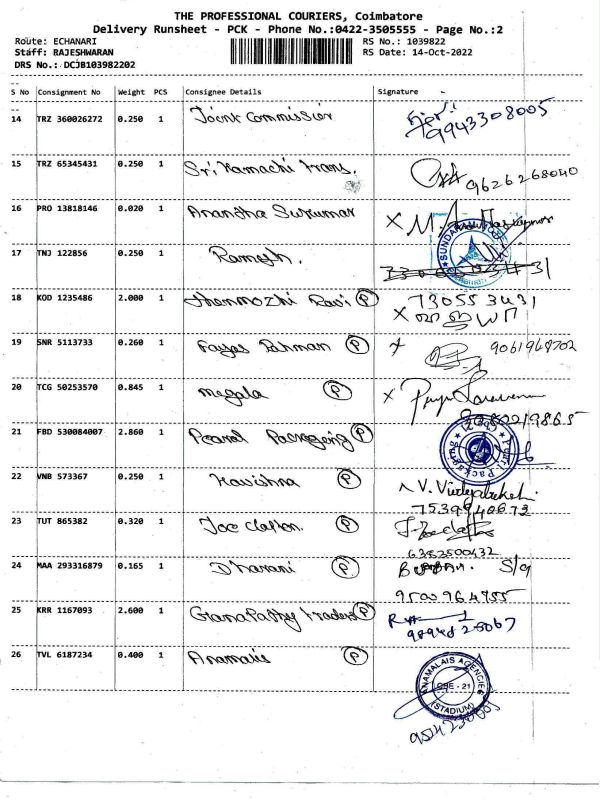 THE PROFESSIONAL COURIERS, Coimbatore
Delivery Runsheet - PCK - Phone No.:0422-3505555 - Page No.:2
Route: ECHANARI RS No.: 1039822
Staff: RAJESHWARAN RS Date: 14-Oct-2022
DRS No.: DCJB103982202
S No Consignment No Weight PCS Consignee Details Signature
14 TRZ 360026272 0.250 1 Joint Commissior
9943308005
15 TRZ 65345431 0.250 1 Sri Kamachi trans.
9626268040
16 PRO 13818146 0.020 1 Anandha Sukumar X M.
17 TNJ 122856 0.250 1 Ramesh.
SUNDARAM
18 KOD 1235486 2.000 1 thenmozhi Ravi P 730553431
X
19 SNR 5113733 0.260 1 Fayas Rahman P X 9061968702
20 TCG 50253570 0.845 1 megala P X
21 FBD 530084007 2.860 1 Pearal Packaging P
22 VNB 573367 0.250 1 Kavishna P V.
7539940672
23 TUT 865382 0.320 1 Joe clafton. P
6382500432
24 MAA 293316879 0.165 1 Dharani P S/g
9500964755
25 KRR 1167093 2.600 1 GanaPathy traders P
26 TVL 6187234 0.400 1 Anamalis P
ANAMALAIS AGENCIES
CBE - 21
(STADIUM)